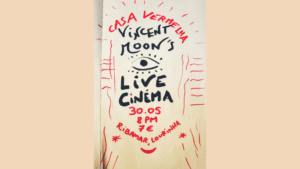 CASA VERMELHA
VINCENT
MOON'S
LIVE
CINEMA
30.05
8 PM
7€
RIBAMAR, LOURINHÃ